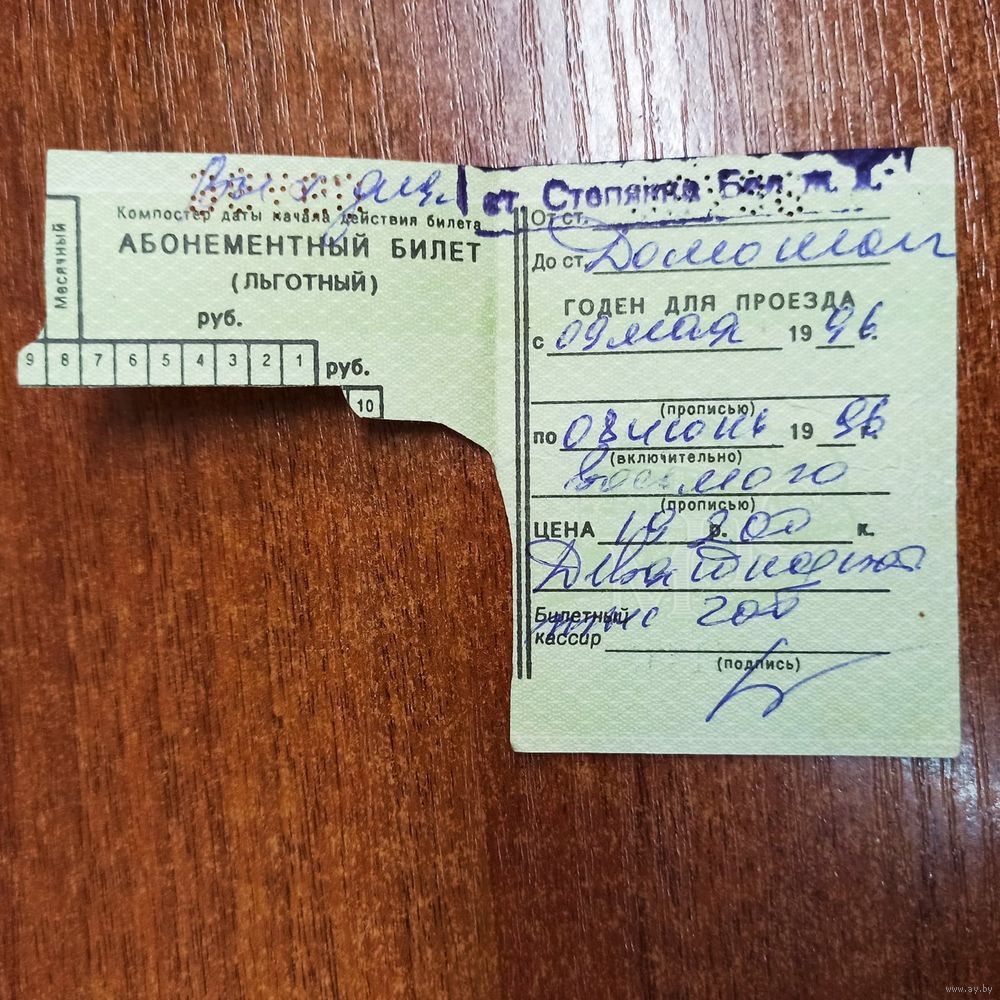 Компостер даты начала действия билета
АБОНЕМЕНТНЫЙ БИЛЕТ
(ЛЬГОТНЫЙ)
руб.
Месячный
9 8 7 6 5 4 3 2 1 руб.
10
ст. Степянка Бел. ж. д.
От ст.
До ст.
ГОДЕН ДЛЯ ПРОЕЗДА
с 09 мая 1996 г.
(прописью)
по 08 июнь 1996 г.
(включительно)
восьмого
(прописью)
ЦЕНА 19 р. 200 к.
Девятнадцат
Билетный тыс 200
кассир
(подпись)
www.ay.by